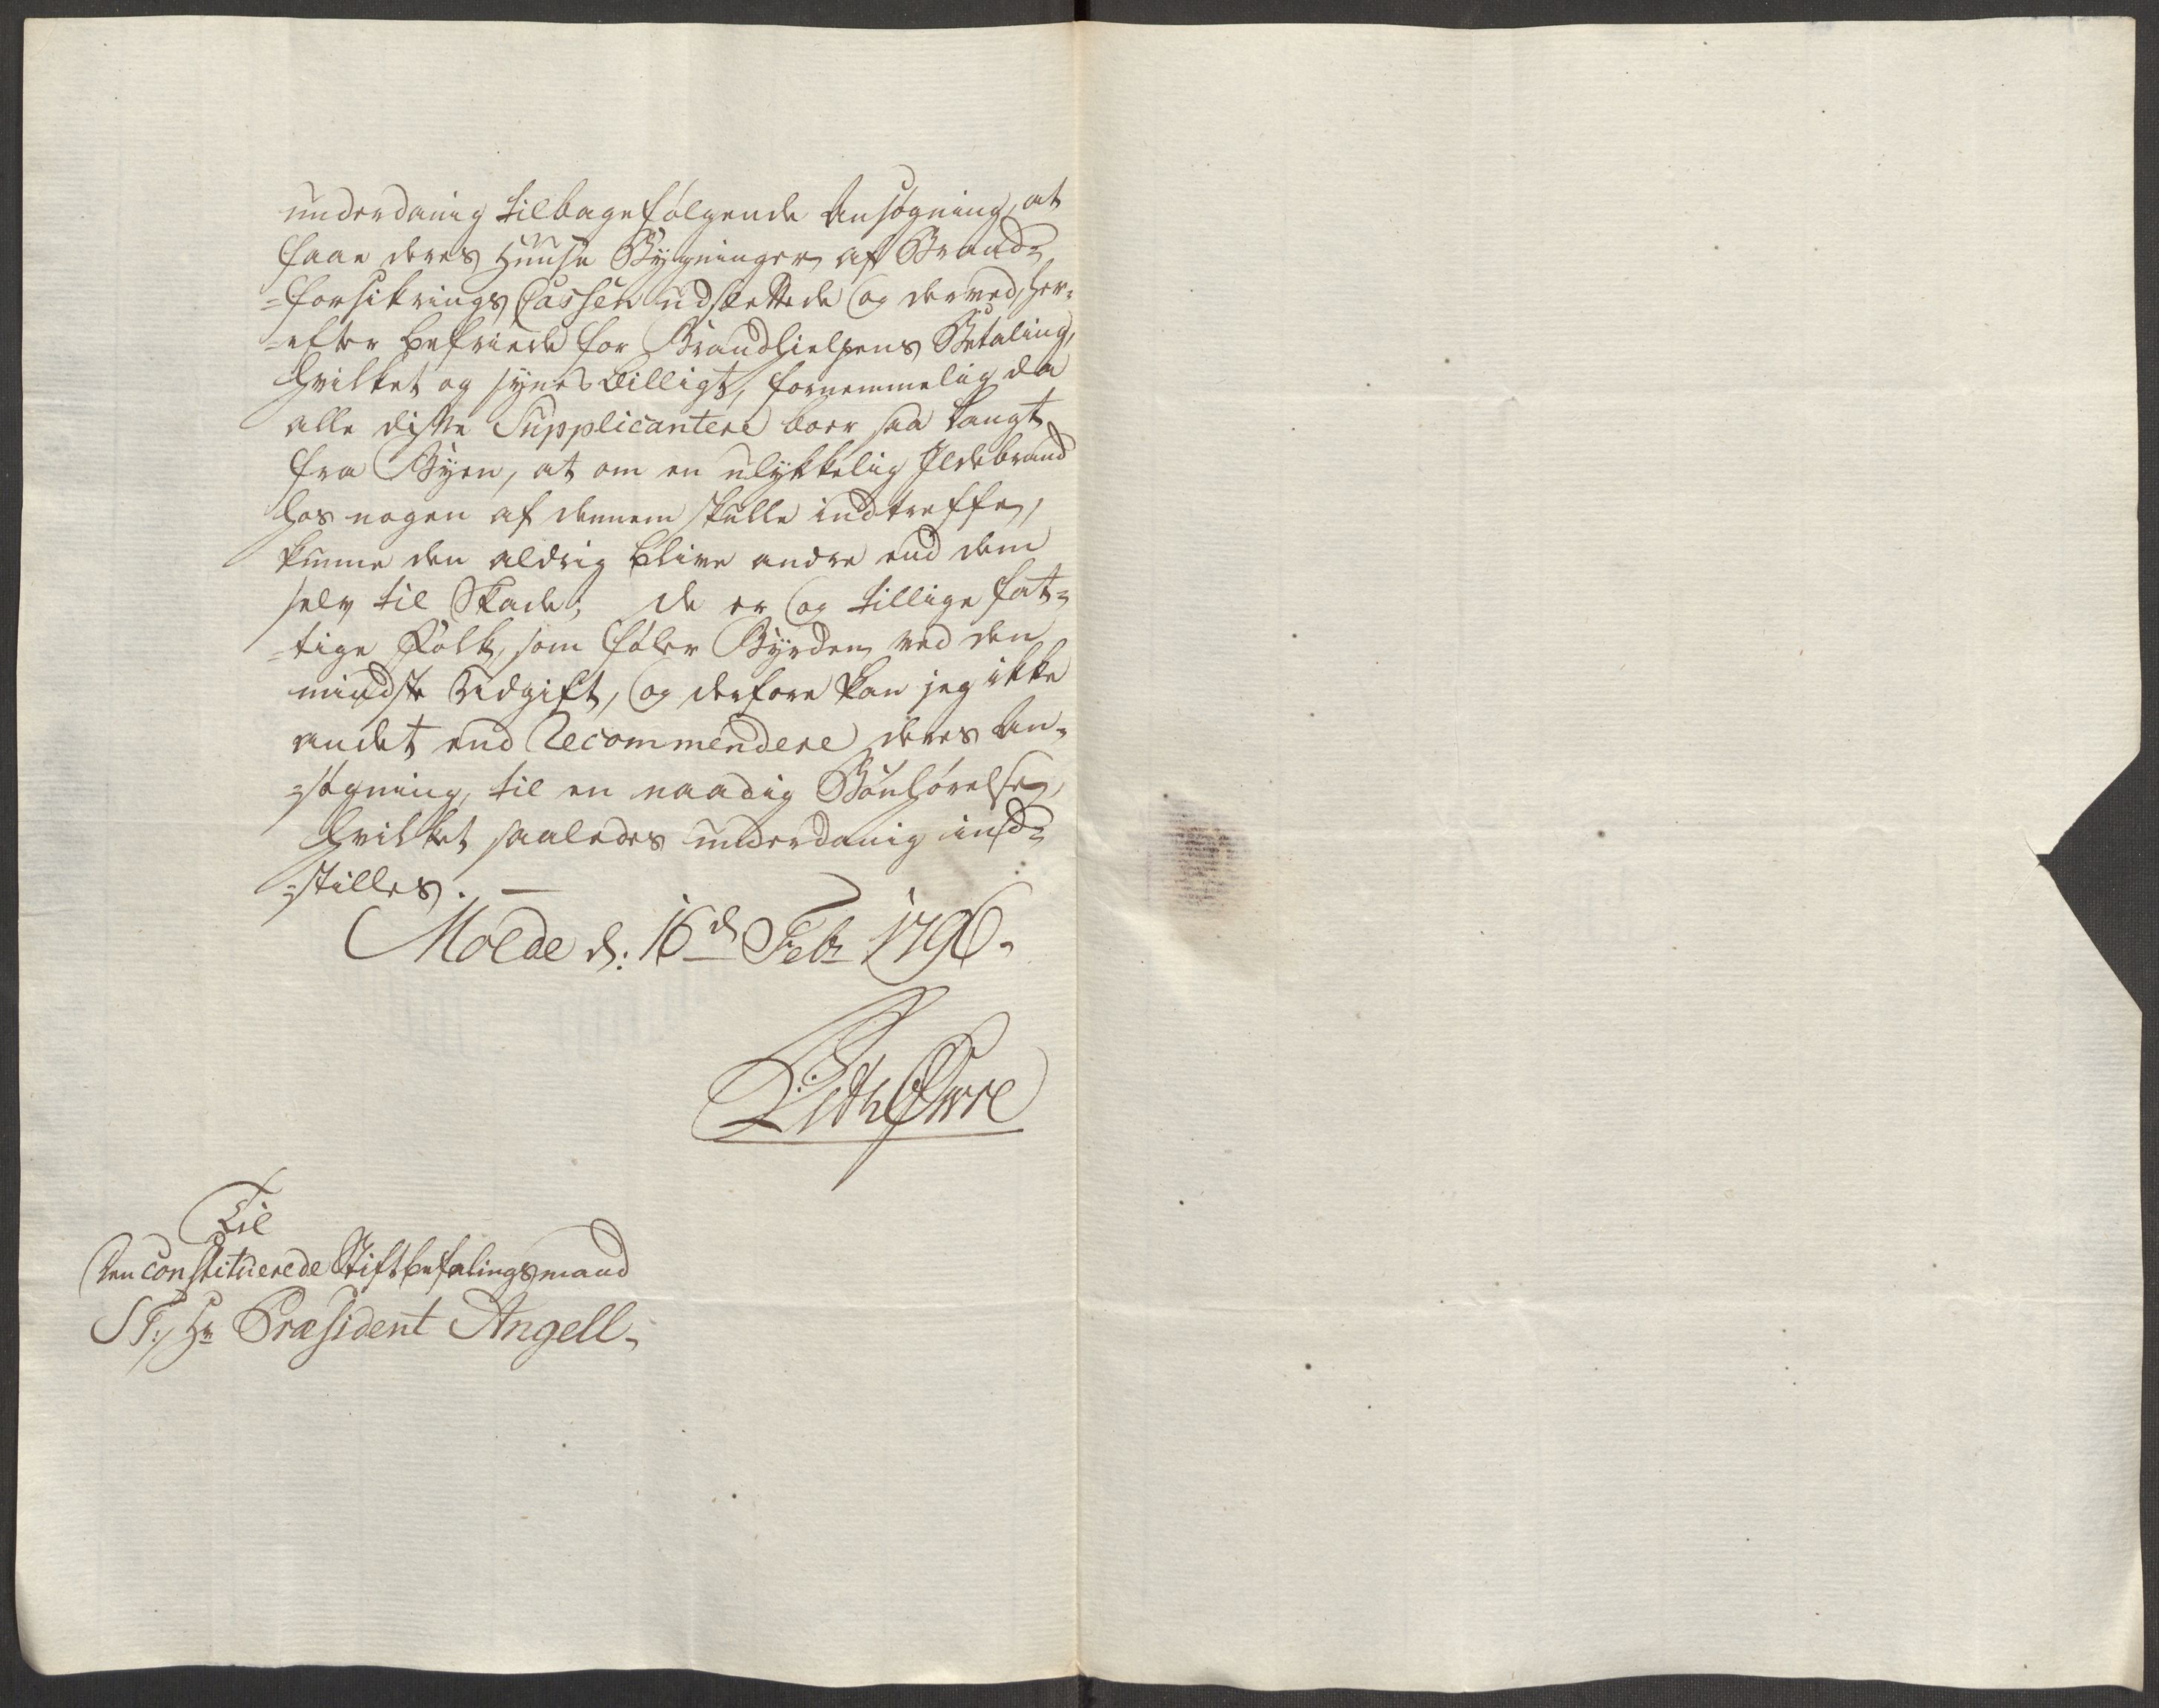 underdanig tilbagefølgende Ansøgning, at
faae deres Huuse Bygninger af Brand=
=forsikrings Cassen udslettede og derved, her=
=efter befriede for Brandhielpens Betaling,
hvilket og synes billigt, fornemmelig da
alle disse Supplicantere boer saa langt
fra Byen, at om en ulykkelig Ildebrand
hos nogen af dennem skulle indtreffe,
kunne den aldrig blive andre end dem
selv til Skade; de er og tillige fat=
=tige Folk, som føler Byrden ved den
mindste Udgift, og derfore kan jeg ikke
andet end Recommendere deres An=
=søgning, til en naadig Bønhørelse,
hvilket saaledes underdanig ind=
=stilles. —
Molde d: 16d Febr 1796.
Til
Den constituerede Stiftbefalingsmand
S T: Hr Præsident Angell.